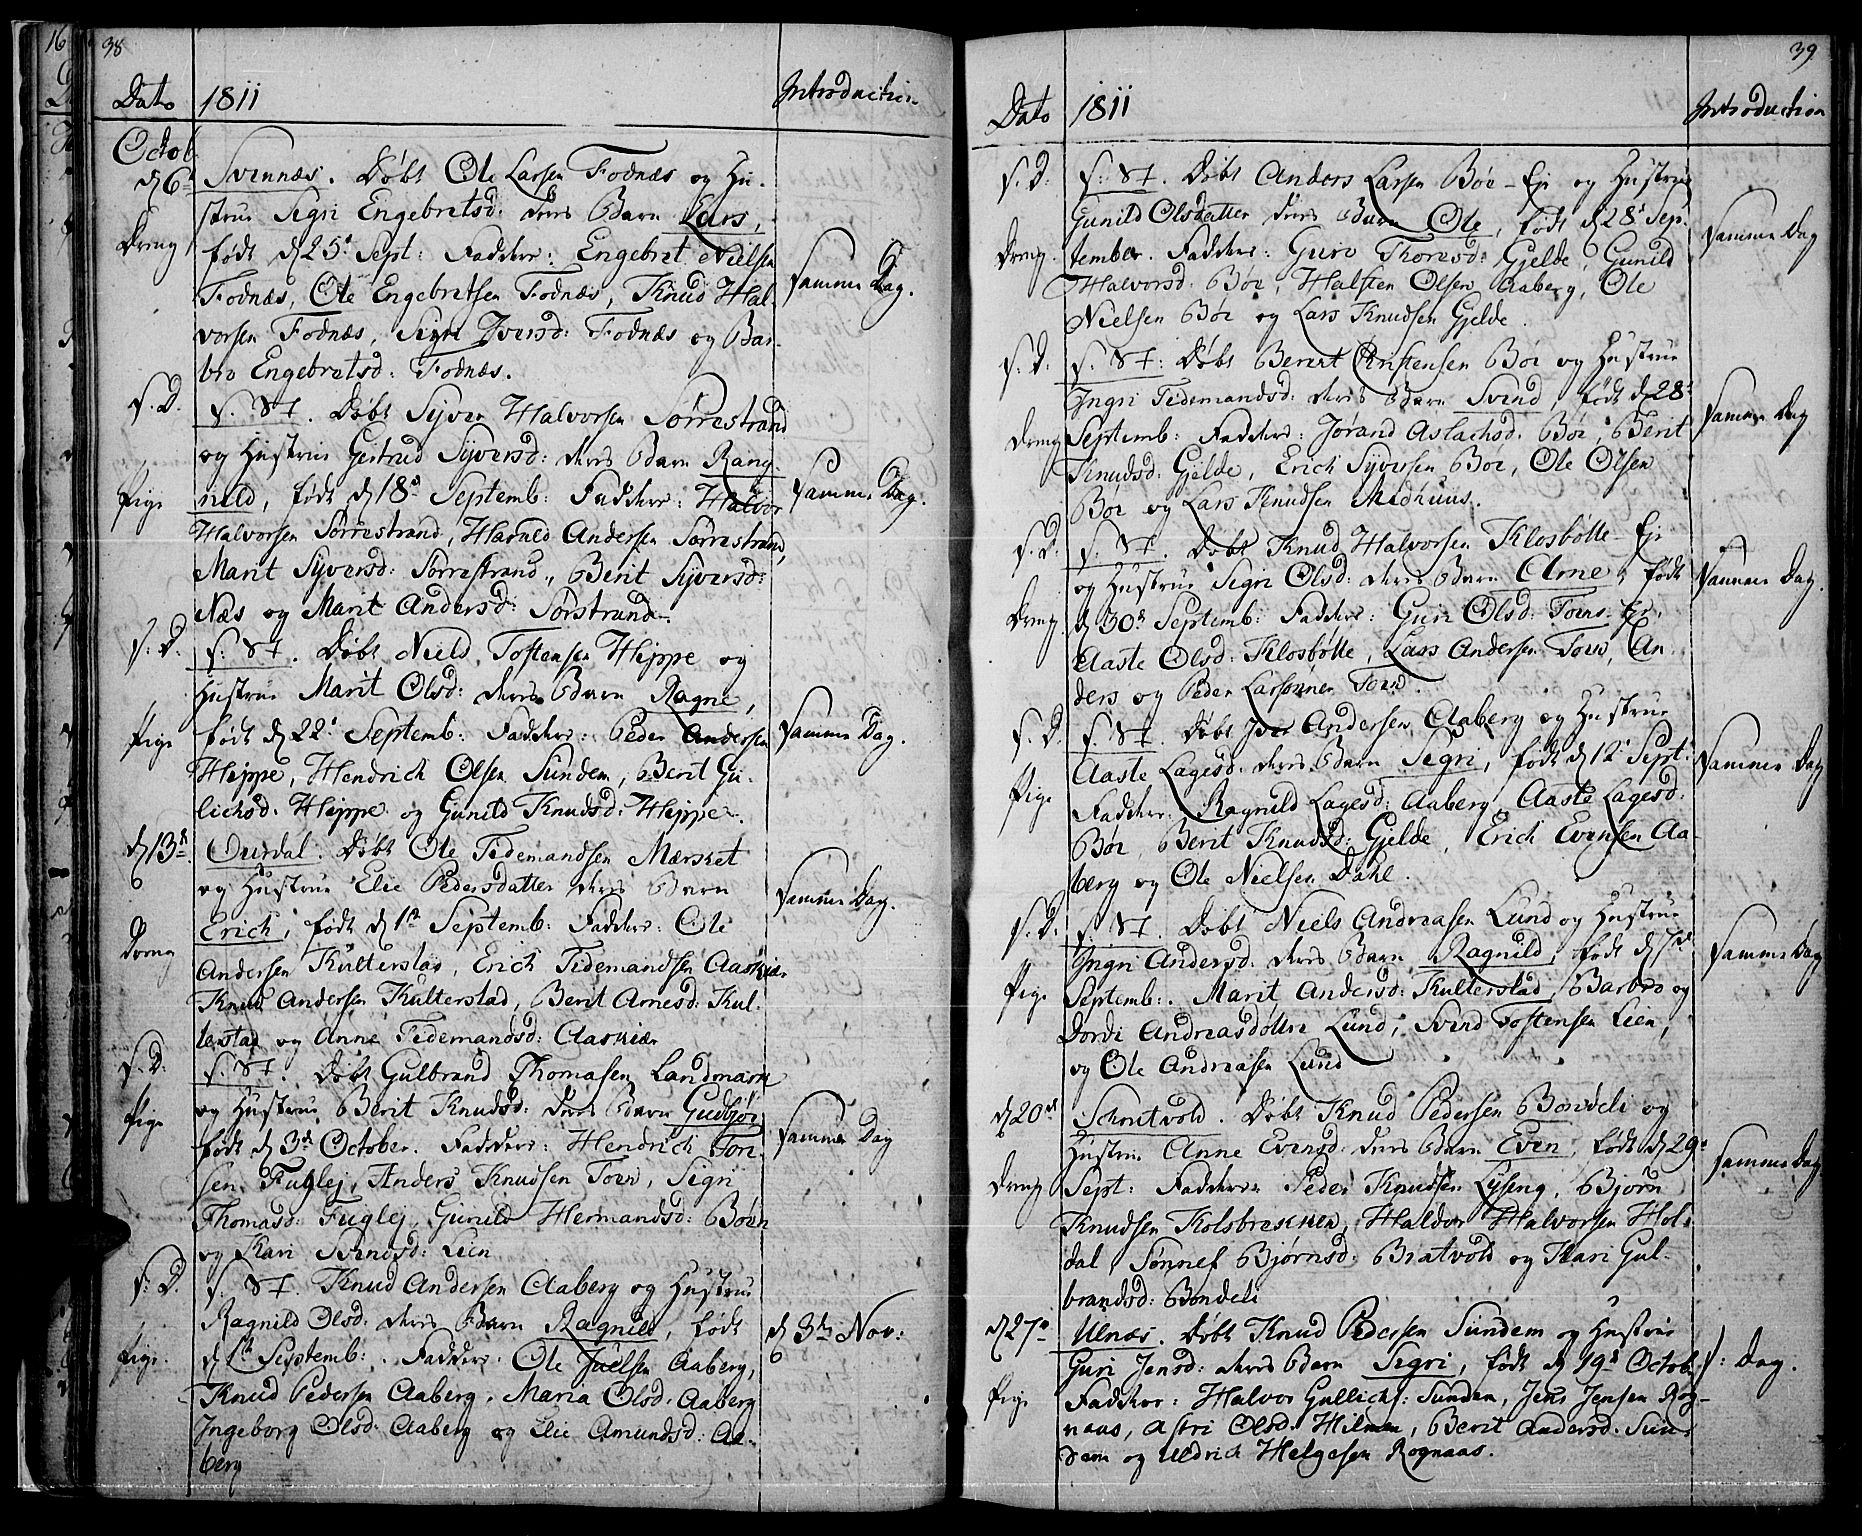 38
Dato 1811 Introduction
Octob:
d 6t Svennæs. Døbt Ole Larsen Fodnæs og Hu-
strue Segri Engebretsd: deres Barn Lars,
Dreng født d 25t Sept: Faddere: Engebret Nielsen
Fodnæs, Ole Engebretsen Fodnæs, Knud Hal- Samme Dag.
vorsen Fodnæs, Sigri Iversd: Fodnæs og Bar-
bro Engebretsd: Fodnæs.
S. D. S: St. Døbt Syver Halvorsen Sørrestrand
og Hustrue Gertrud Syversd: deres Barn Rang-
Pige nild, født d 18d Septemb: Faddere: Halvor Samme Dag.
Halvorsen Sørrestrand, Harald Andersen Sørrestrand,
Marit Syversd: Sørrestrand, Berit Syversd:
Næs og Marit Andersd: Sørstrand.
S: D. S: St. Døbt Nield Tostensen Heppe og
Hustrue Marit Olsd: deres Barn Ragne,
Pige født d 22d Septemb: Faddere: Peder Andersen Samme Dag.
Heppe, Hendrich Olsen Sundem, Berit Gu-
lichsd. Heppe og Gunild Knudsd: Heppe.
d 13de Ourdal. Døbt Ole Tidemandsen Mærsket
og Hustrue Elie Pedersdatter deres Barn Samme Dag.
Dreng Erich, født d 1te Septemb: Faddere: Ole
Andersen Kulterstad, Erich Tidemandsen Aaskiær
Knud Andersen Kulterstad, Berit Arnesd: Kul-
terstad og Anne Tidemandsd: Aaskiær
S. D. S. St. Døbt Gulbrand Thomasen Landmark
Pige og Hustrue Berit Knudsd: deres Barn Gudbjør
født d 3de October. Faddere: Hendrich Tori- Samme Dag
sen Fuglej, Anders Knudsen Toen, Sigri
Thomasd: Fuglej, Gunild Hermandsd: Bøen
og Kari Svendsd: Lien
S: D. S. St. Knud Andersen Aaberg og Hustrue
Ragnild Olsd: deres Barn Ragnild, født d 3de Nov:
Pige. d 1te Septemb: Faddere: Ole Juelsen Aaberg,
Knud Pedersen Aaberg, Maria Olsd: Aaberg
Ingeborg Olsd: Aaberg og Elie Amundsd: Aa-
berg
39
Dato 1811 Introduction
S. D. S: St. Døbt Anders Larsen Bøe-Eje og Hustrue
Gunild Olsdatter deres Barn Ole, født d 28d Sep- Samme Dag
Dreng. tember. Faddere: Guro Thoresd: Gjelde, Gunild
Halvorsd: Bøe, Halsten Olsen Aaberg, Ole
Nielsen Bøe og Lars Knudsen Gjelde.
S. D. S. St: Døbt Berent Christensen Bøe og Hustrue
Ingri Tidemandsd: deres Barn Svend, født d 28d Samme Dag
Dreng Septemb: Faddere: Jørand Aslachsd. Bøe, Berit
Knudsd: Gjelde, Erich Syversen Boe, Ole Olsen
Bøe og Lars Knudsen Medhuus.
S. D. S. St. Døbt Knud Halvorsen Klosbøtte-Eje
og Hustrue Segri Olsd: deres Barn Arne, født Samme Dag.
Dreng. d 30d Septemb: Faddere: Guri Olsd: Toens Eje,
Aaste Olsd: Klosbøtte, Lars Andersen Toen, An-
ders og Peder Larsønner Toen.
S. D. S. St. Døbt Iver Andersen Aaberg og Hustrue
Aaste Lagesd: deres Barn Segri, født d 12t Sept: Samme Dag
Pige Faddere: Ragnild Lagesd: Aaberg, Aaste Lagesd:
Bøe, Berit Knudsd: Gjelde, Erich Evensen Aa-
berg og Ole Nielsen Dahl.
S. D. S. St. Døbt Niels Andreasen Lund og Hustrue
Ingri Andersd: deres Barn Ragnild, født d 7de Samme Dag
Pige Septemb:. Marit Andersd: Kulterstad, Barbro og
Dordi Andreasdøttre Lund, Svend Tostensen Lien,
og Ole Andreasen Lund
d 20de Schrutvold. Døbt Knud Pedersen Bøndeli og
Hustrue Anne Evensd: deres Barn Even, født d 29d Samme Dag
Dreng Sept: Faddere Peder Knudsen Lyseng, Bjørn
Knudsen Kolsbrekken, Haldor Halvorsen Hol-
dal, Sønnef Bjørnsd: Bratvold og Kari Gul-
brandsd: Bøndeli
d 27d Ulnæs. Døbt Knud Pedersen Sundem og Hustrue
Guri Jensd: deres Barn Segri, født d 19d Octob: S: Dag.
Pige Faddere: Halvor Gullichs: Sundem, Jens Jensen Rog-
naas, Astri Olsd: Hilmen, Berit Andersd: Sun-
dem og Uldrich Helgesen Rognaas.